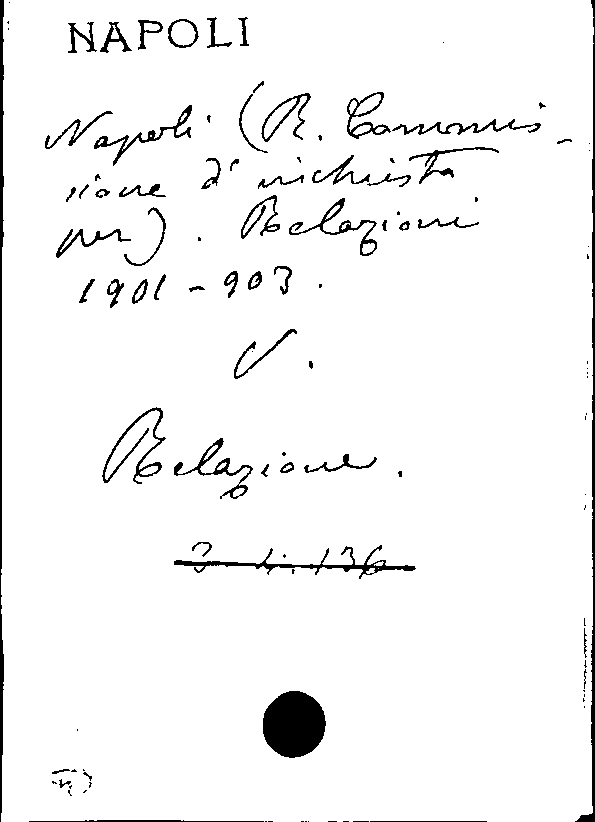 NAPOLI
Napoli (R. Commis-
sione d'inchiesta
per). Relazioni
1901-903.
V.
Relazione.